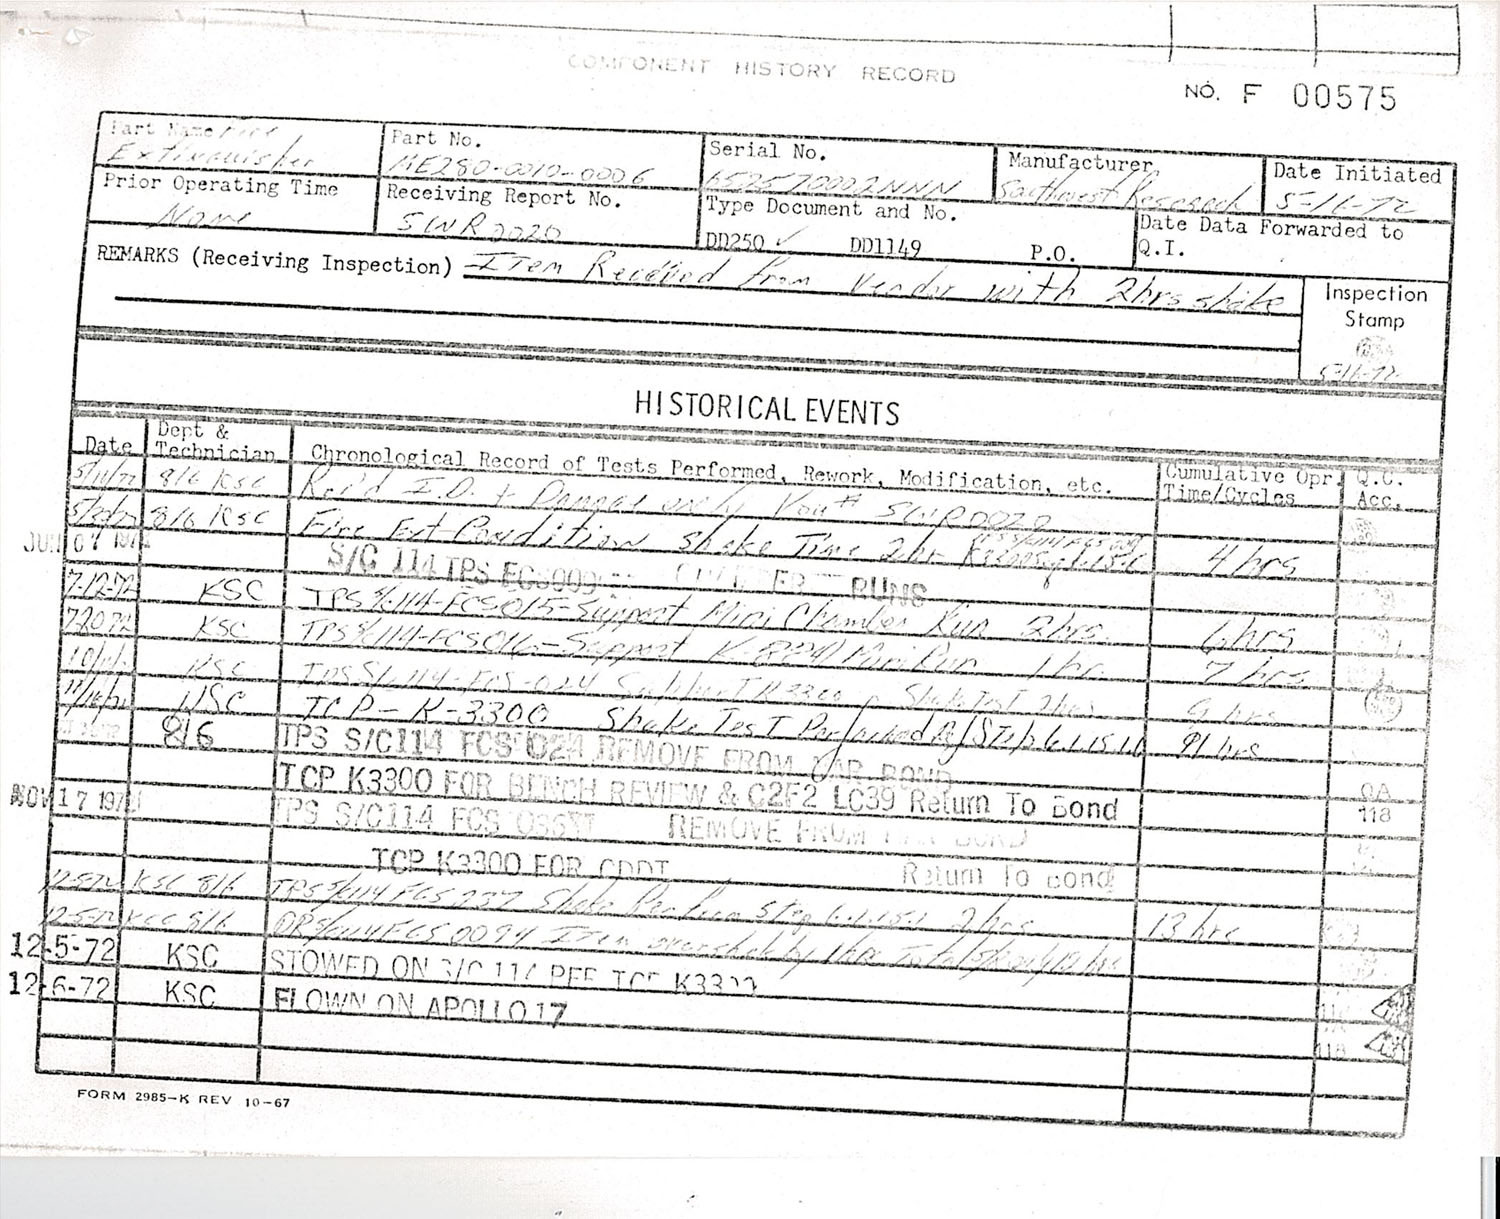 COMPONENT HISTORY RECORD
NO. F 00575
Part Name Fire Extinguisher
Part No. ME280-0010-0006
Serial No.
Manufacturer Southwest Research
Date Initiated 5-11-72
Prior Operating Time None
Receiving Report No. SWR0020
Type Document and No. DD250 ✓ DD1149 P.O.
Date Data Forwarded to Q.I.
REMARKS (Receiving Inspection) Item Received from Vendor with 2hrs shake
Inspection Stamp
5-11-72
HISTORICAL EVENTS
Date Dept & Technician Chronological Record of Tests Performed, Rework, Modification, etc. Cumulative Opr. Time/Cycles Q.C. Acc.
5/11/72 816 KSC Rec'd I.D. + Damage only SWR0020
816 KSC Fire Ext Condition Shake Time 2hr 4 hrs
JUN 07 S/C 114 TPS CHAMBER RUNS
7-12-72 KSC TPS S/C 114-FCS015-Support Mini Chamber Run 2hrs. 6 hrs
7-20-72 KSC TPS S/C 114-FCS016-Support Mini Run 1 hr. 7 hrs
KSC TPS S/C 114-FCS-024 Support K3300 Shake Test 2hrs 9 hrs
KSC TCP-K-3300 Shake Test Performed hrs
816 TPS S/C114 FCS 024 REMOVE FROM BOND
TCP K3300 FOR BENCH REVIEW & C2F2 LC39 Return To Bond
NOV 17 TPS S/C114 FCS REMOVE FROM BOND
TCP K3300 FOR CDDT Return To Bond
12-5-72 KSC 816 TPS S/C 114 FCS Shake 2 hrs 13 hrs
12-5-72 KSC 816 DR S/C 114 FCS 0094 Item overshook by
12-5-72 KSC STOWED ON S/C 114 PER TCP K3300
12-6-72 KSC FLOWN ON APOLLO 17
QA 118
118
FORM 2985-K REV 10-67